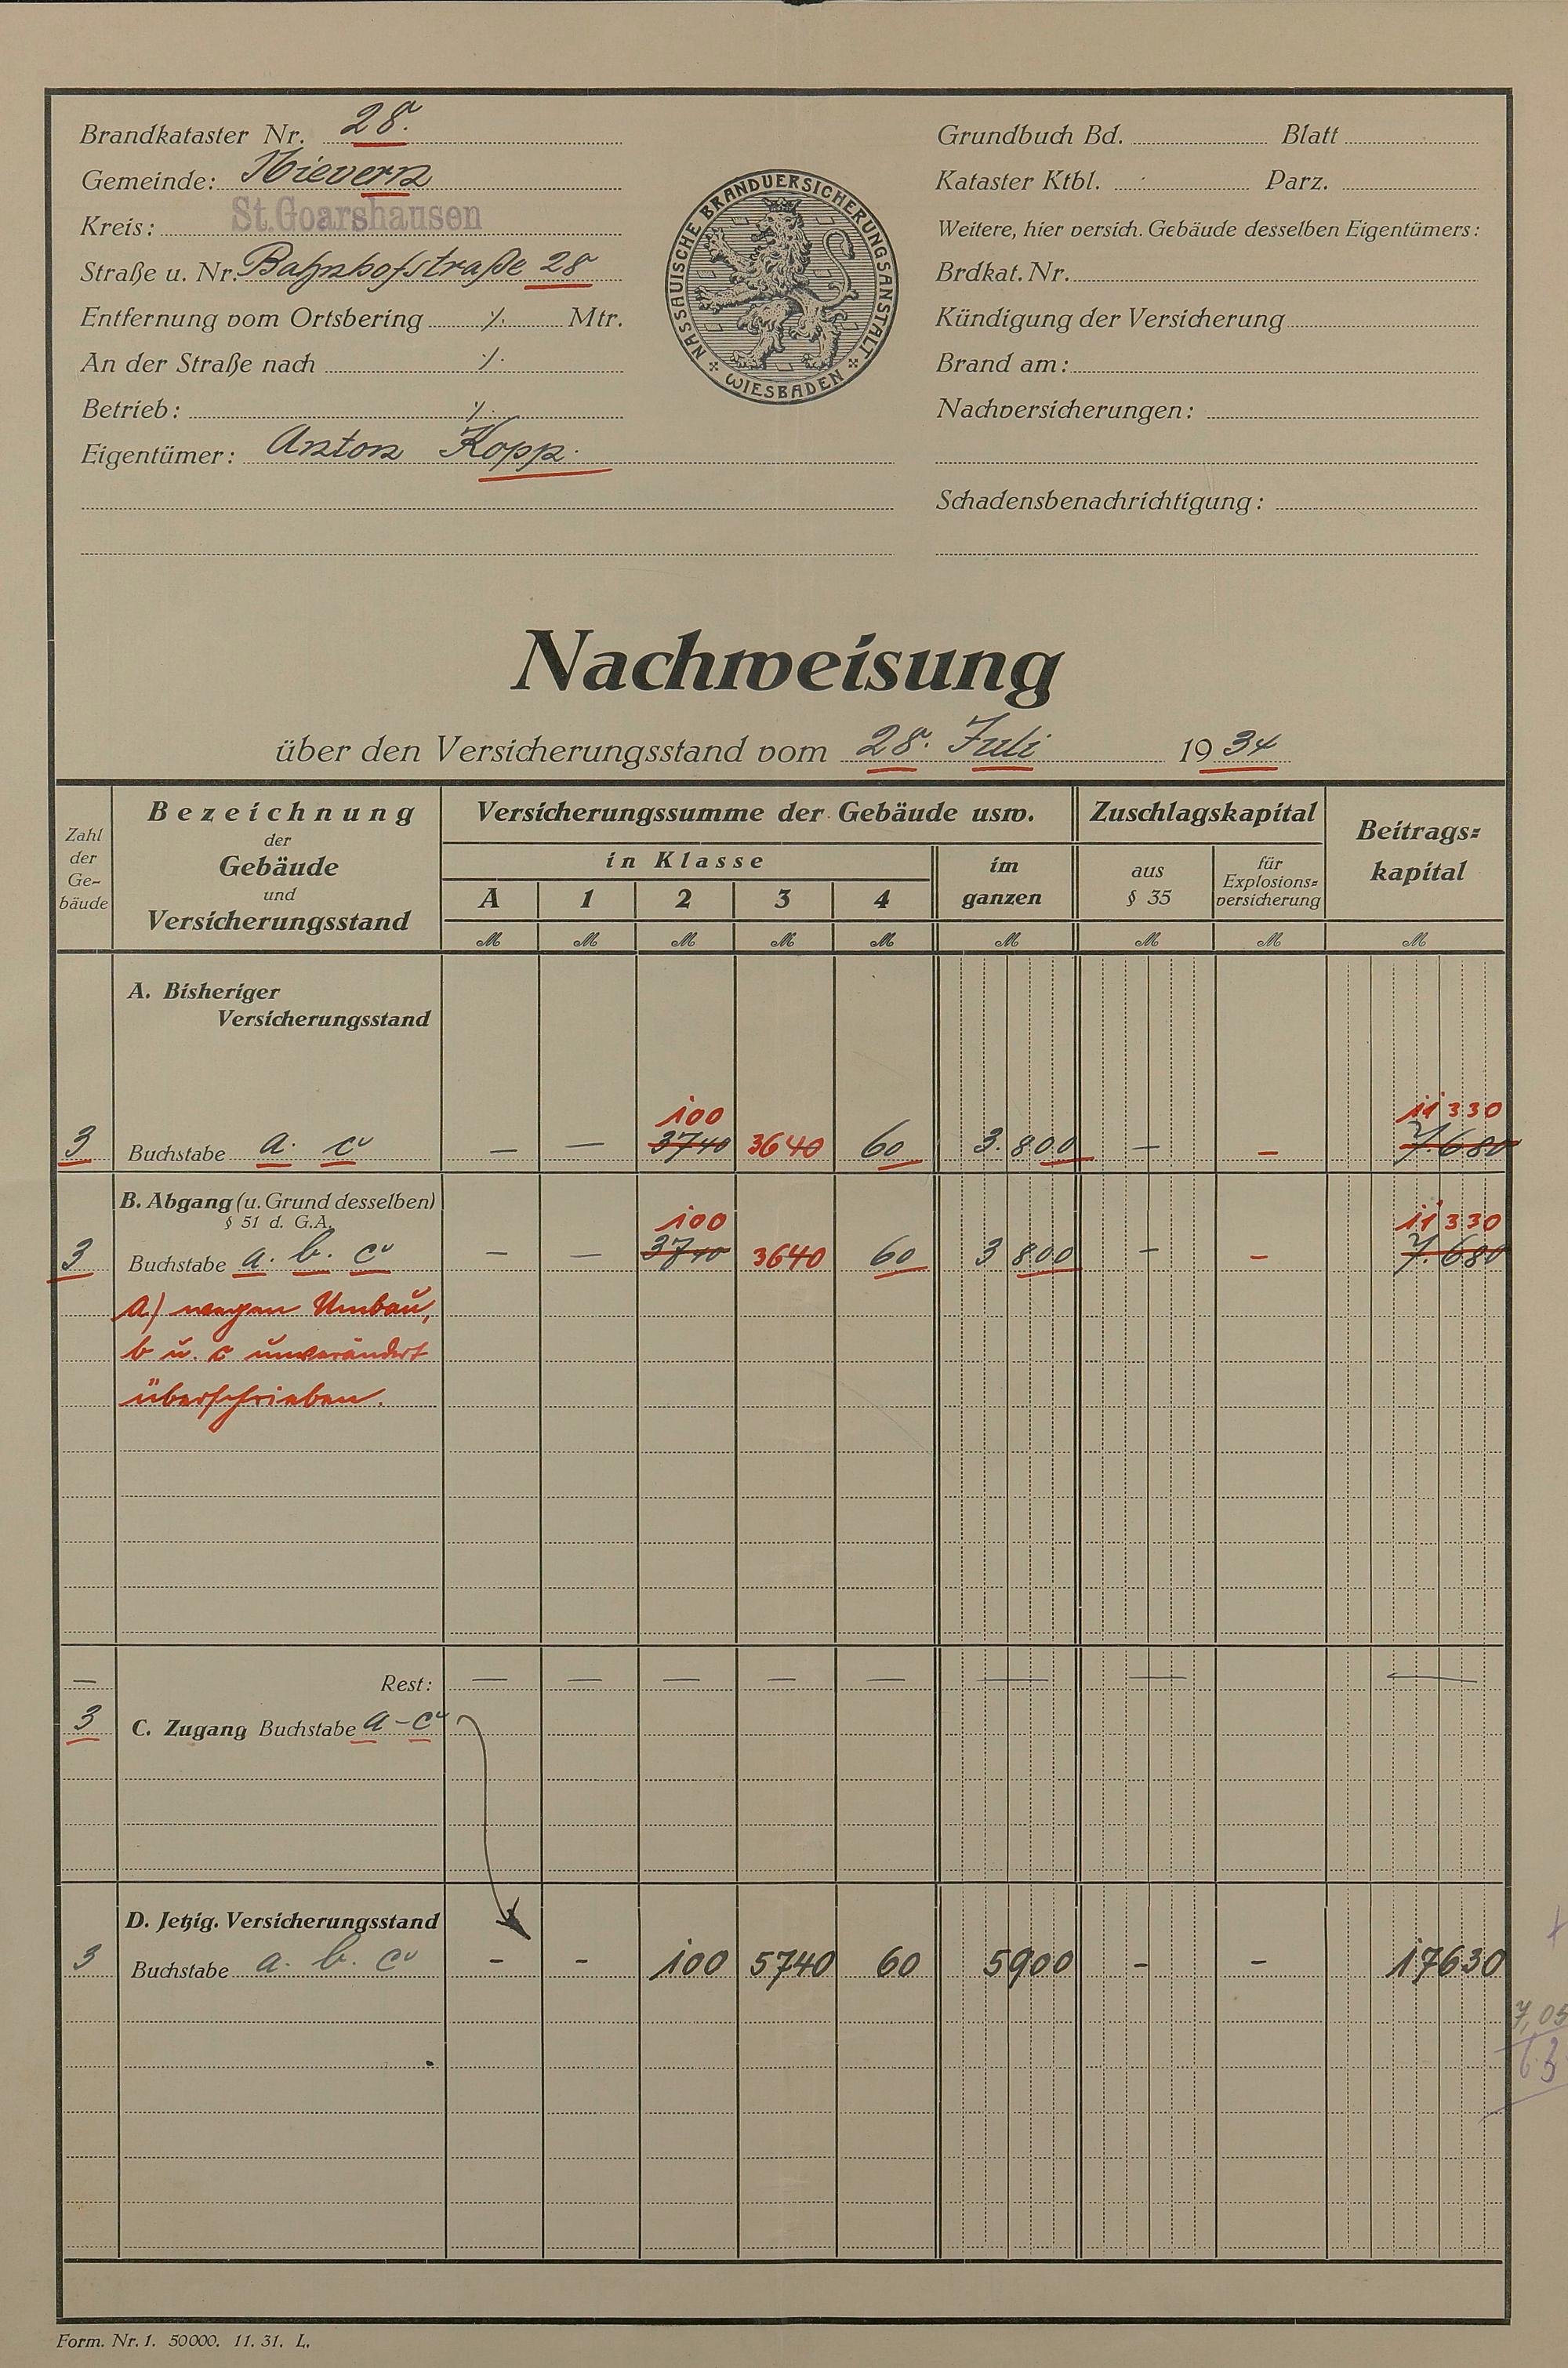 Brandkataster Nr. 28.
Gemeinde: Nievern
Kreis: St. Goarshausen
Straße u. Nr. Bahnhofstraße 28
Entfernung vom Ortsbering ·/. Mtr.
An der Straße nach ·/.
Betrieb: ·/.
Eigentümer: Anton Kopp.
NASSAUISCHE BRANDVERSICHERUNGSANSTALT
* WIESBADEN *
Grundbuch Bd. Blatt
Kataster Ktbl. Parz.
Weitere, hier versich. Gebäude desselben Eigentümers:
Brdkat. Nr.
Kündigung der Versicherung
Brand am:
Nachversicherungen:
Schadensbenachrichtigung:
Nachweisung
über den Versicherungsstand vom 28. Juli 1934
Zahl der Ge- bäude
Bezeichnung der Gebäude und Versicherungsstand
Versicherungssumme der Gebäude usw.
in Klasse
A 1 2 3 4
im ganzen
Zuschlagskapital
aus § 35
für Explosions= versicherung
Beitrags= kapital
M M M M M M M M M
A. Bisheriger
Versicherungsstand
100 11 330
3 Buchstabe a. c — — 3740 3640 60 3.800 — — 7.680
B. Abgang (u. Grund desselben)
§ 51 d. G.A.
100 11 330
3 Buchstabe a. b. c — — 3740 3640 60 3 800 — — 7.680
a) wegen Umbau,
b u. c unverändert
überschrieben.
— Rest: — — — — — — — —
3 C. Zugang Buchstabe a - c
D. Jetzig. Versicherungsstand
3 Buchstabe a. b. c - - 100 5740 60 5900 - - 17630
7,05
63
Form. Nr. 1. 50000. 11. 31. L.